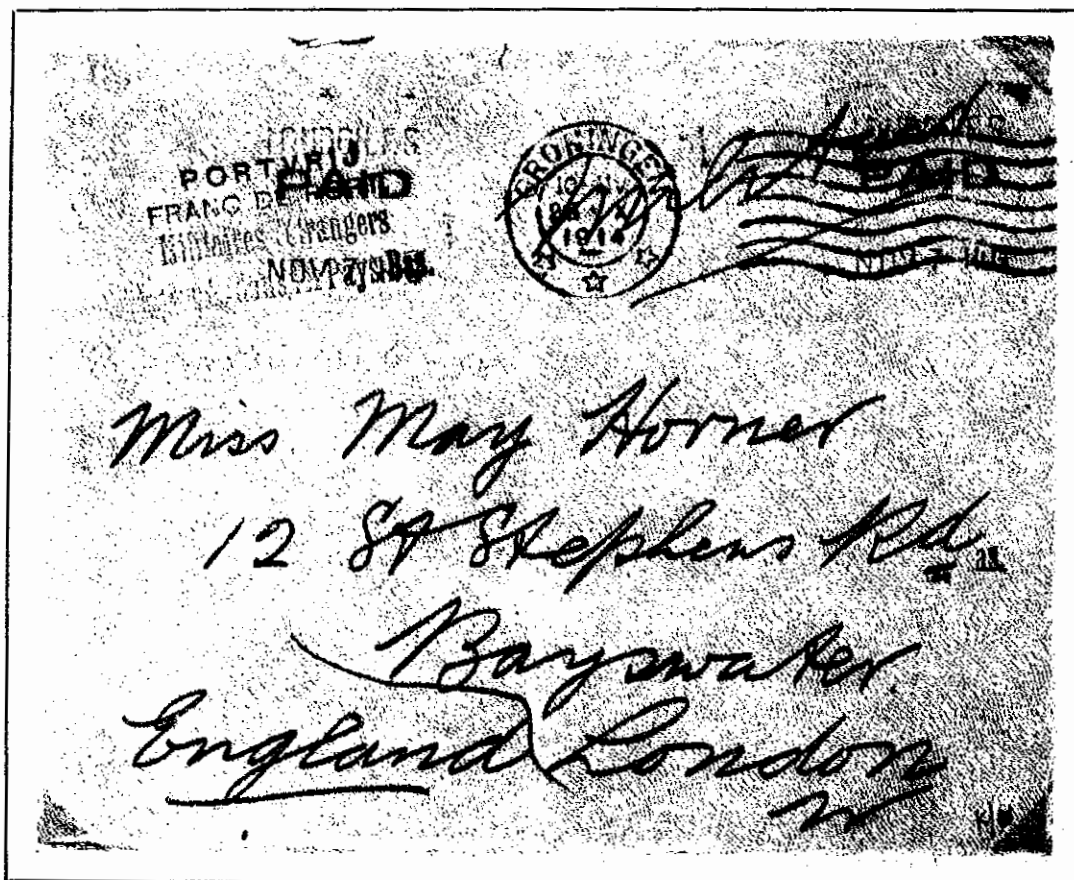 PORTVRIJ
FRANC DE PORT
PAID
Militaires étrangers
Pays Bas.
NOV
GRONINGEN
1914
PAID
NOV
Miss May Horner
12 St Stephens Rd
Bayswater
England London
W